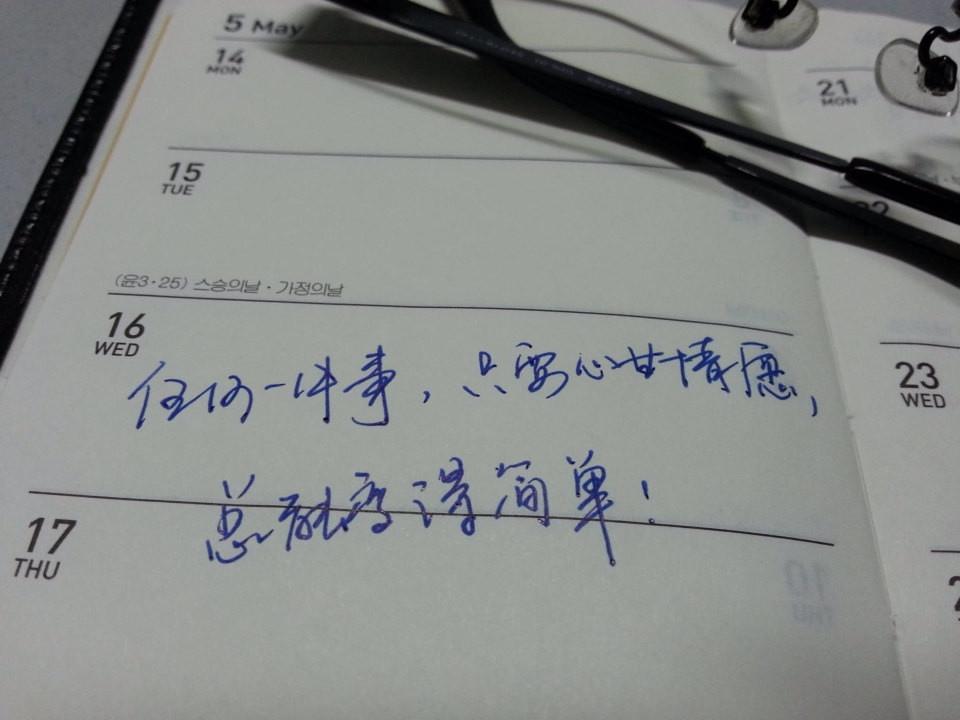 5 May
14
MON
15
TUE
(윤3·25) 스승의날 · 가정의날
16
WED
任何一件事，只要心甘情愿，
总能变得简单！
17
THU
21
MON
22
23
WED